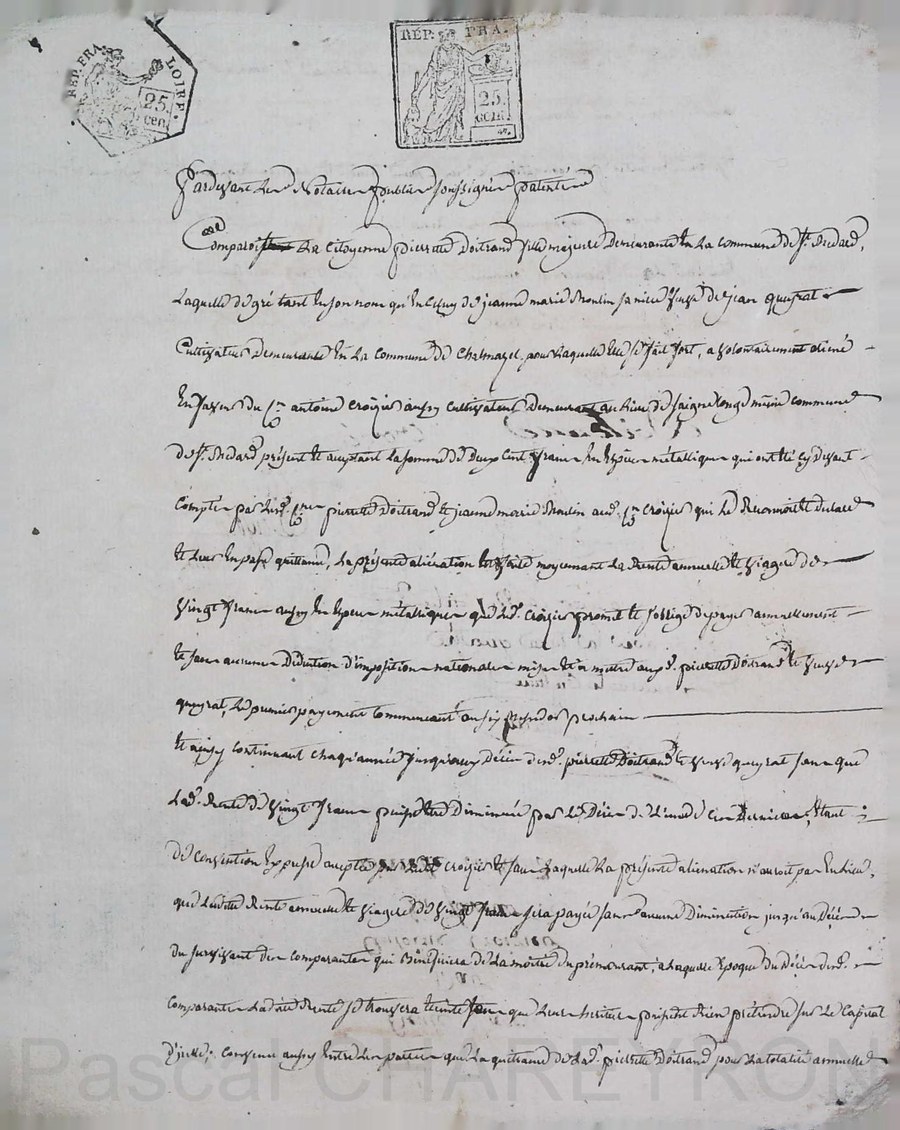 REP. FRA. LOIRE.
25. cen.
RÉP. FRA.
25.
Pardevant Les Notaires publics soussignés patentés
Comparoit La Citoyenne pierrette Doitrand fille majeure Demeurante En La commune de St. Medard,
Laquelle de gré tant En son nom qu'En Celuy de jeanne marie Moulin sa niece Veuve de jean queyrat
Cultivateur Demeurante En La Commune de Chalmazel, pour Laquelle Elle se fait fort, a volontairement aliéné
En faveur du Cn. antoine croizier aussy Cultivateur Demeurant au Lieu de Saignelonge même commune
de St. Medard présent et acceptant La somme de Deux Cent francs En Espèces métalliques qui ont été cy devant
Comptés par Lesd. Cnes pierrette Doitrand et jeanne marie Moulin aud. Cn. croizier qui Le Reconnoit et declare
et Leur En passe quittance, La présente aliénation Est faite moyennant La Rente annuelle et viagere de
Vingt francs aussy En Espèces métalliques que Led. Croizier promet et s'oblige de payer annuellement
et sans aucune Déduction d'imposition nationale mise et a mettre auxd. pierrette Doitrand et Veuve
queyrat, Le premier payement Commencant au six messidor prochain
et ainsy continuant chaqu'année jusqu'aux Décès desd. pierrette Doitrand et veuve queyrat sans que
Lad. Rente de vingt francs puisse Etre Diminuée par Le Décès de L'une de ces Dernières, Etant
de Convention Expresse acceptée par Ledit croizier et sans Laquelle La présente aliénation n'auroit pas Eu Lieu,
que Ladite Rente annuelle et viagere de Vingt francs sera payée sans aucune Diminution jusqu'au Décès
du survivant des comparantes qui Bénéficiera de La moitié du prémourant, a Laquelle Epoque du Décès desd.
Comparantes Ladite Rente se trouvera Eteinte sans que Leurs héritiers puissent Rien prétendre sur Le Capital
d'icelle; Convenu aussy Entre Les parties que La quittance de Lad. pierrette Doitrand pour La totalité annuelle
Pascal CHAREYRON